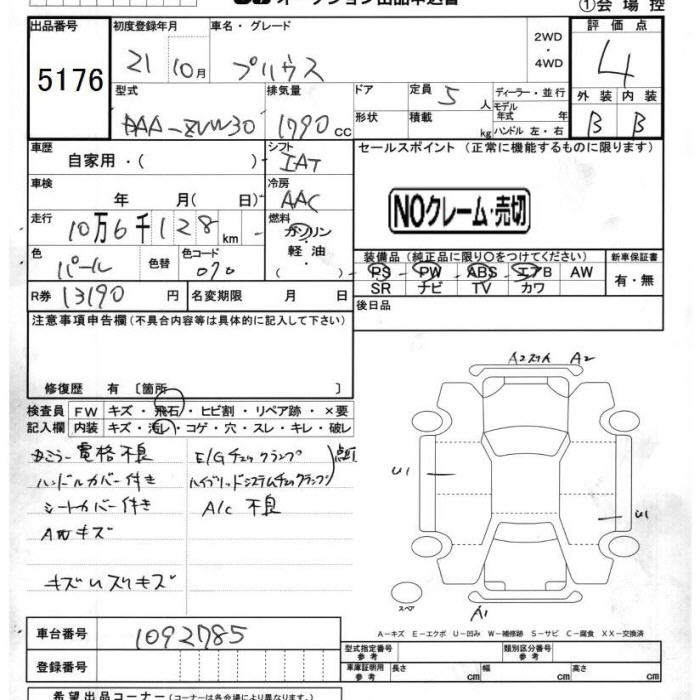 オークション出品申込書
①会場控
出品番号 初度登録年月 車名・グレード 2WD・4WD 評価点
5176 21 10月 プリウス 4
型式 排気量 ドア 定員 5人 ディーラー・並行 外装 内装
DAA-ZVW30 1790cc 形状 積載 kg モデル年式 年 ハンドル 左・右 B B
車歴 自家用・( ) シフト IAT セールスポイント (正常に機能するものに限ります)
車検 年 月(日) 冷房 AAC
NOクレーム・売切
走行 10万6千128km 燃料 ガソリン・軽油・( )
色 パール 色替 色コード 070
装備品(純正品に限り○をつけてください) 新車保証書
PS PW ABS エアB AW 有・無
SR ナビ TV カワ
R券 13190円 名変期限 月 日 後日品
注意事項申告欄(不具合内容等は具体的に記入して下さい)
修復歴 有〔箇所 〕
検査員 FW キズ・飛石・ヒビ割・リペア跡・×要
記入欄 内装 キズ・汚レ・コゲ・穴・スレ・キレ・破レ
電格不良 E/Gチェックランプ 点灯
ハンドルカバー付き ハイブリッドシステムチェックランプ
シートカバー付き A/C 不良
AWキズ
キズ
A2 A2
U1
U1
スペア
A1
A-キズ E-エクボ U-凹み W-補修跡 S-サビ C-腐食 XX-交換済
車台番号 1092785
登録番号
型式指定番号参考 類別区分番号参考
車庫証明用参考 長さ cm 幅 cm 高さ cm
希望出品コーナー(コーナーは各会場により異なります)